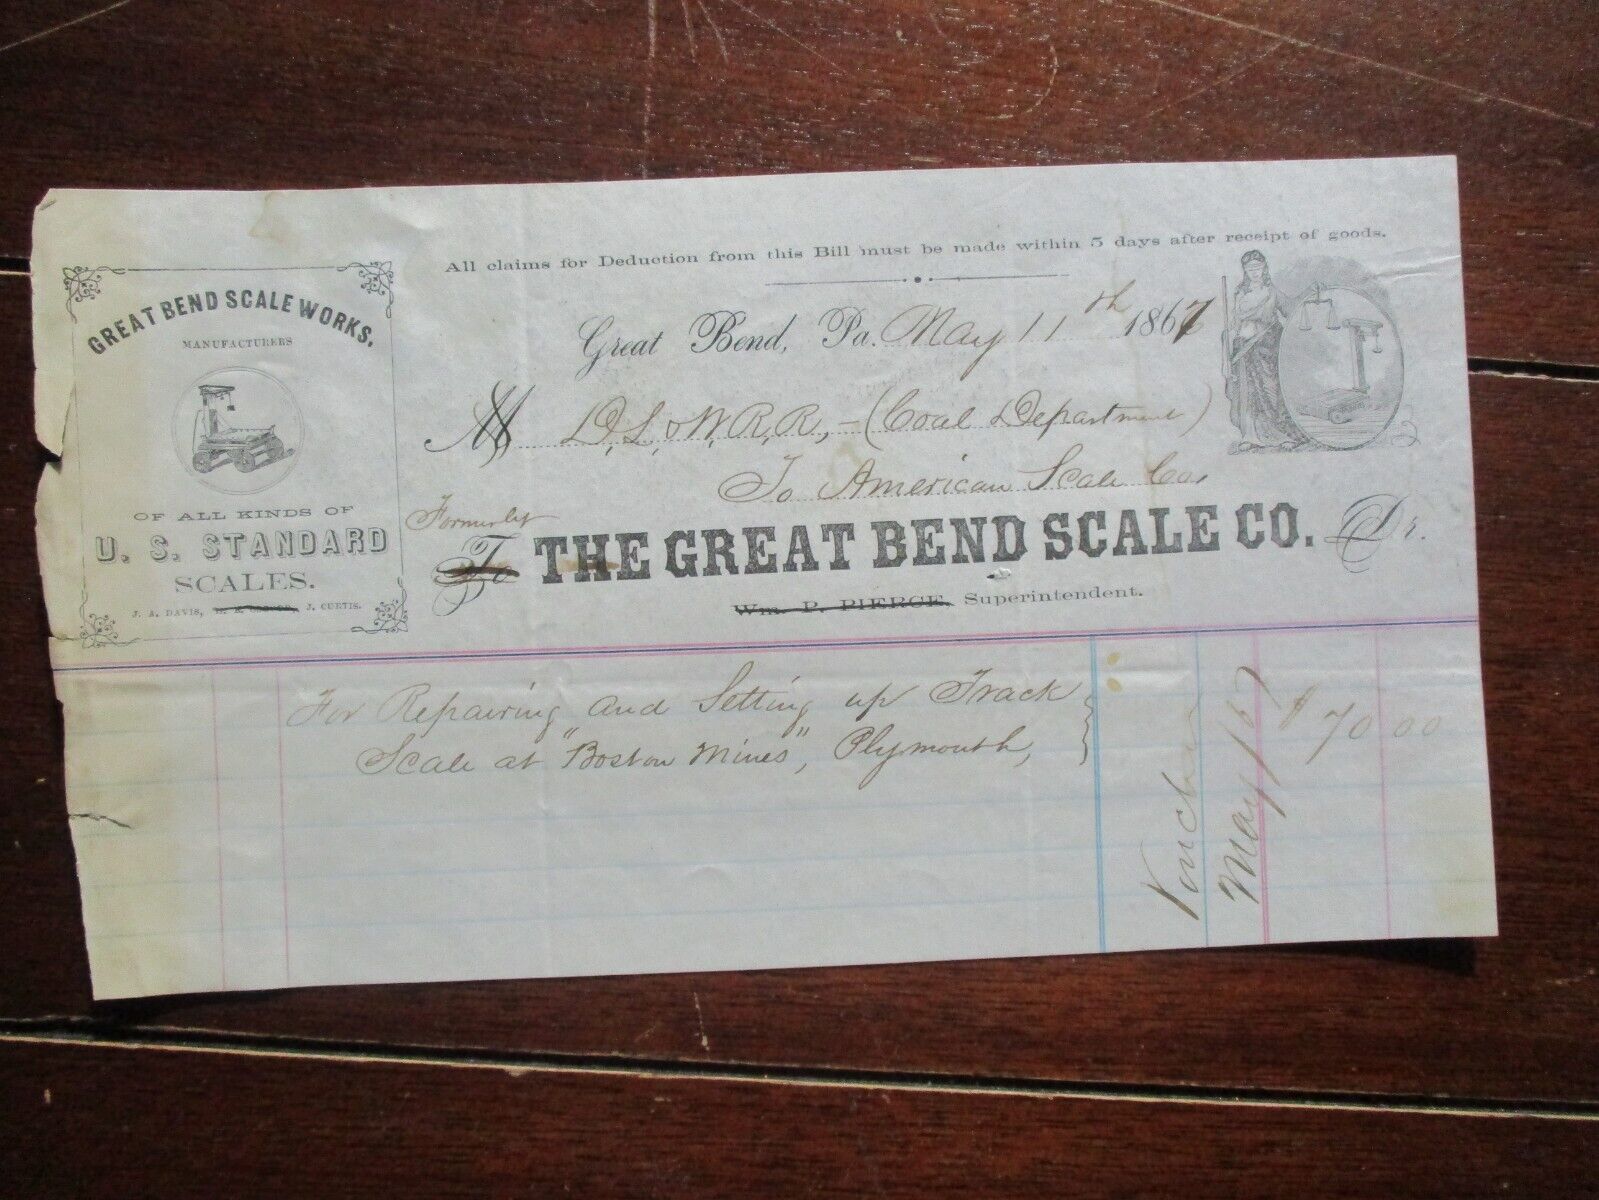 All claims for Deduction from this Bill must be made within 5 days after receipt of goods.
GREAT BEND SCALE WORKS.
MANUFACTURERS
OF ALL KINDS OF
U. S. STANDARD
SCALES.
J. A. DAVIS, J. CURTIS.
Great Bend, Pa. May 11th 1867
M D, L, & W, R, R, - (Coal Department)
To American Scale Co,
Formerly
To THE GREAT BEND SCALE CO. Dr.
Wm. P. PIERCE, Superintendent.
For Repairing and Setting up Track
Scale at "Boston Mines", Plymouth,
$ 70 00
Voucher
May /67